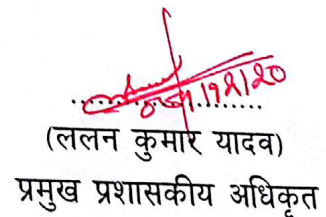 (ललन कुमार यादव)
प्रमुख प्रशासकीय अधिकृत